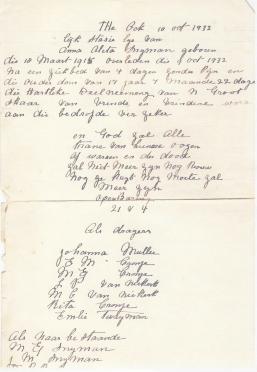 THe Bok 10 oct 1932
Lyk Stasie Lys Van
Anna Aleta Snyman geboren
die 10 Maart 1915 overleden die 1 oct 1932
Na een ziek bed Van 4 dagen zonder Pyn en
die ouderdom van 17 jaar 7 Maande 22 dage
die Hartlike Deelneeming Van N Groot
Skaar Van Vriende en Vriendene word
aan die bedroefde Ver zeker
en God zal Alle
Trane Van hunne oogen
Af wassen en de dood
zal Niet Meer zyn Nog Rouw
Nog ge kryt Nog Moeite zal
Meer zyn
Openbaring
21 v 4
Als dragers
Johanna Muller
E M Cronje
M E Cronje
E P Van Niekerk
M C Van Niekerk
Rita Cronje
Emlie
Als Naar be staande
M E Snyman
M Snyman